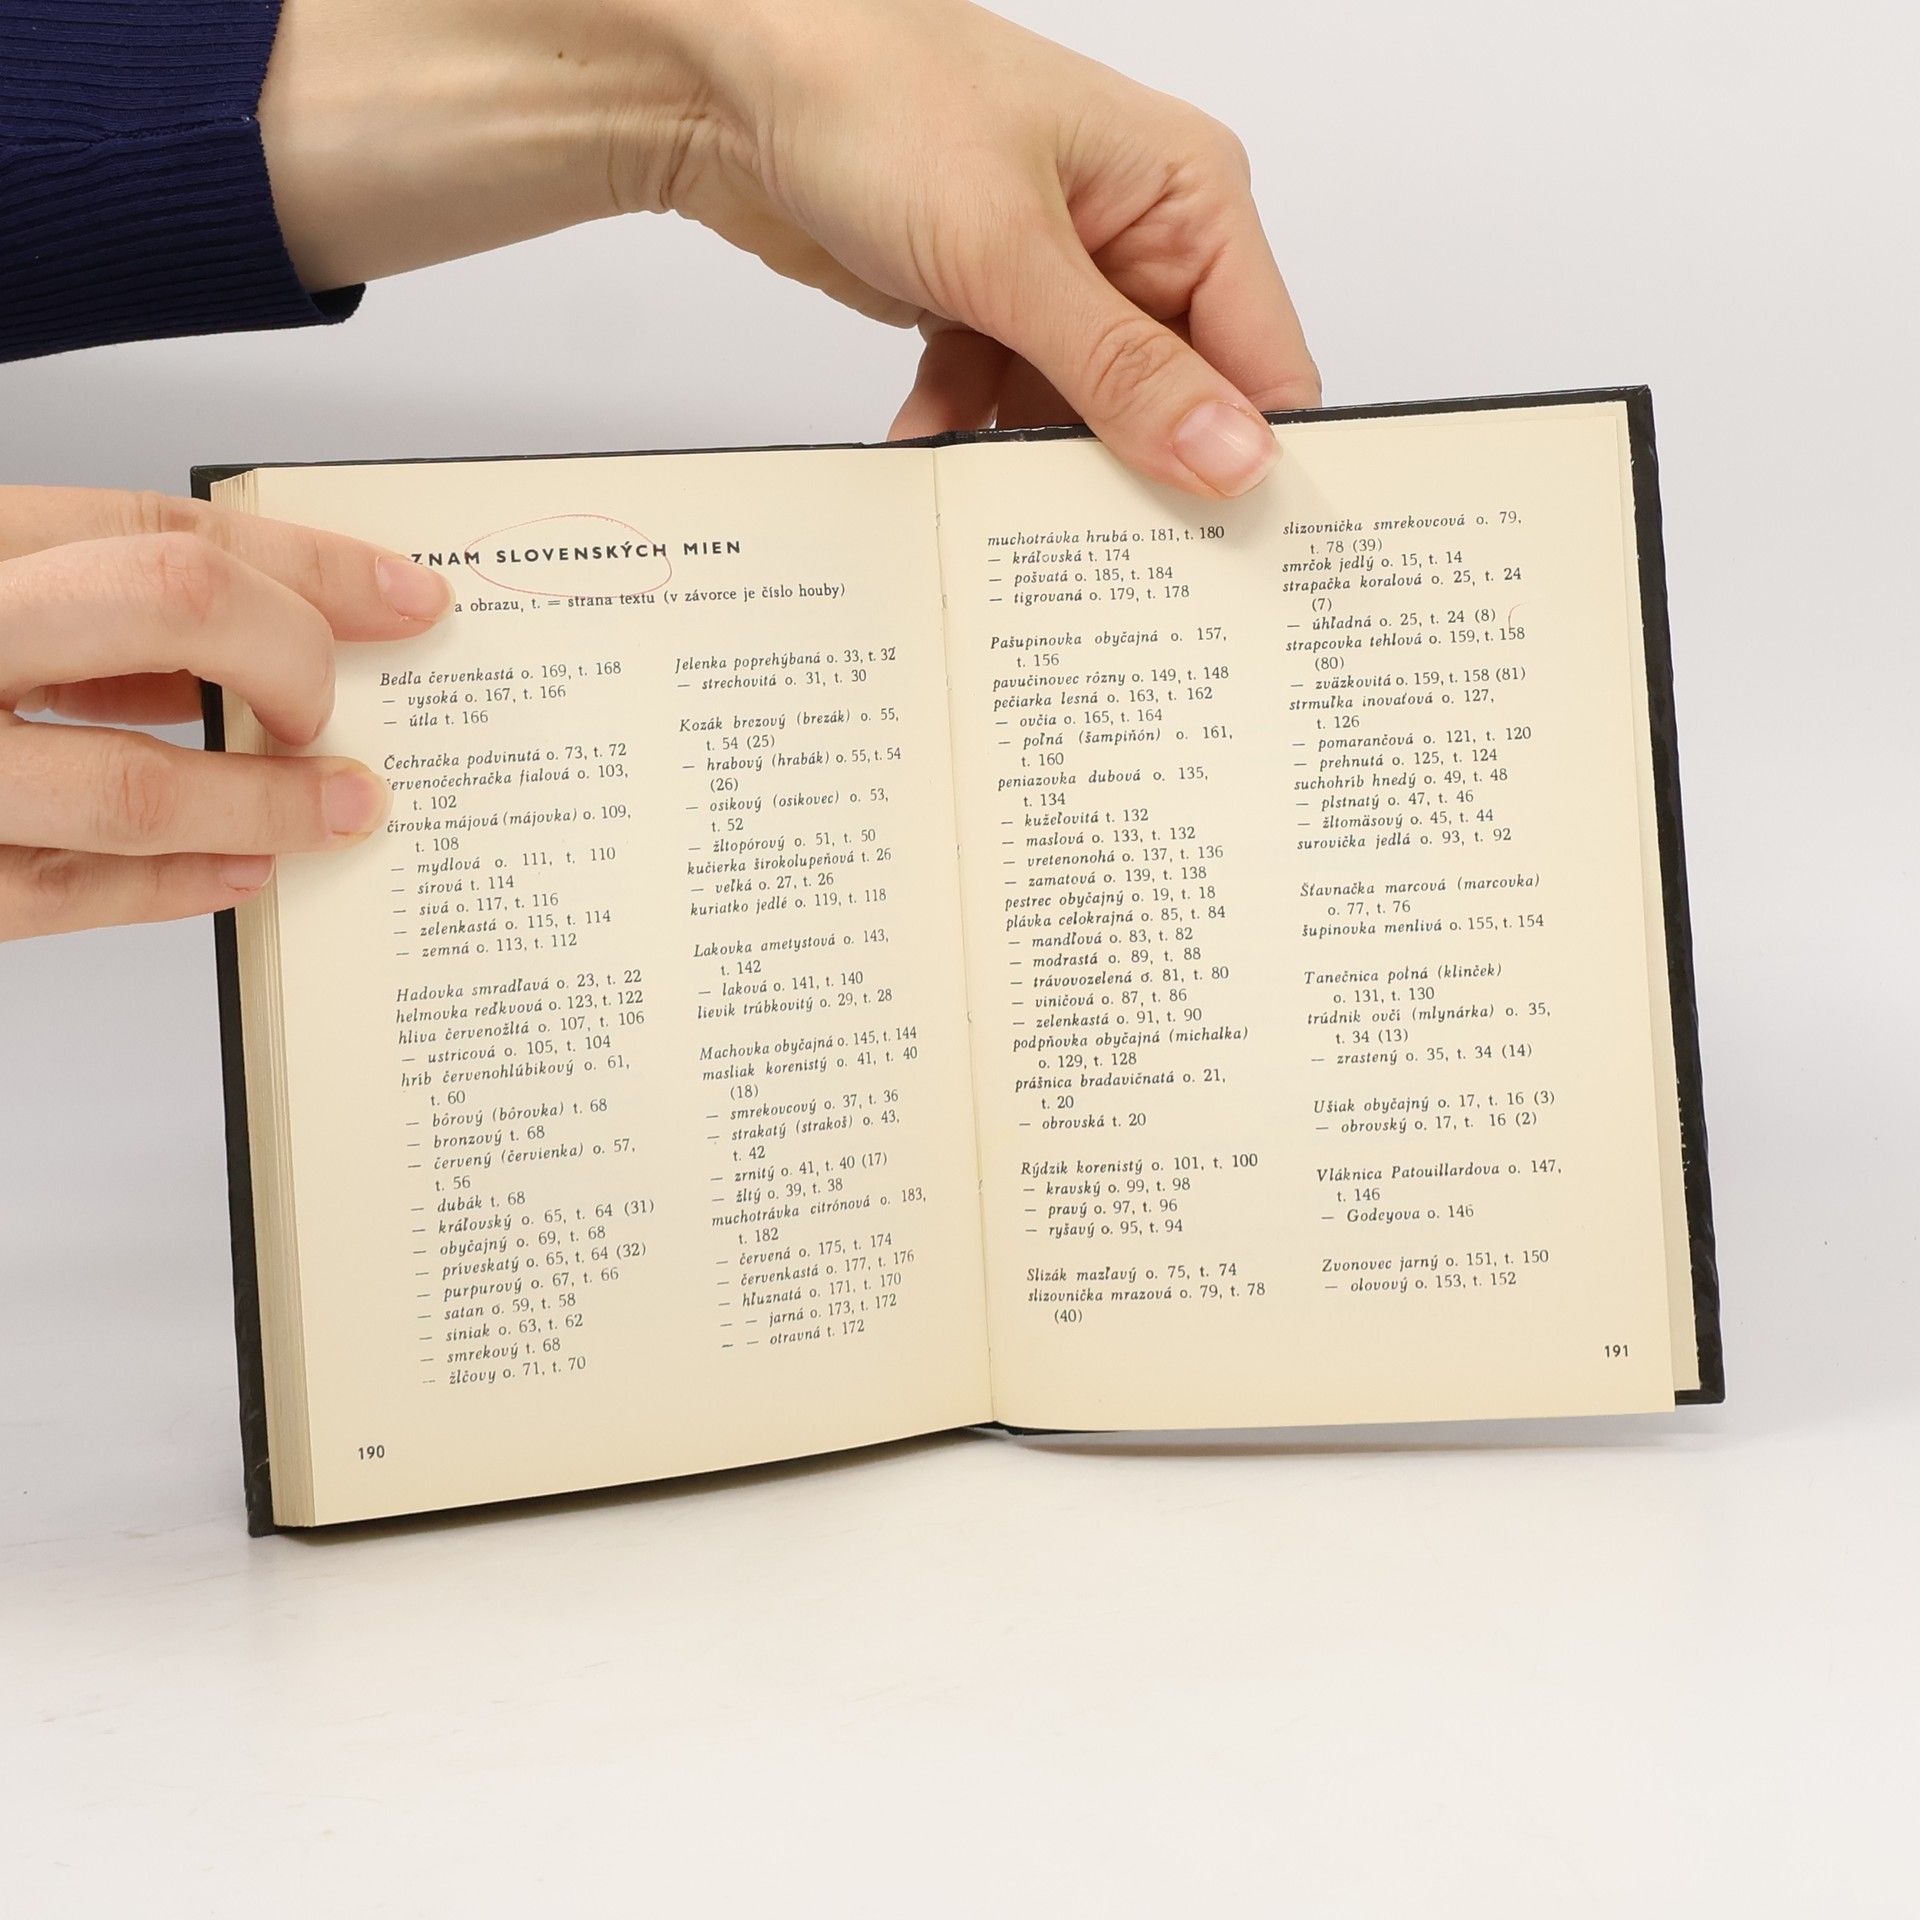 ZNAM SLOVENSKÝCH MIEN
a obrazu, t. = strana textu (v závorce je číslo houby)
Bedľa červenkastá o. 169, t. 168
— vysoká o. 167, t. 166
— útla t. 166
Čechračka podvinutá o. 73, t. 72
ervenočechračka fialová o. 103,
t. 102
čírovka májová (májovka) o. 109,
t. 108
— mydlová o. 111, t. 110
— sírová t. 114
— sivá o. 117, t. 116
— zelenkastá o. 115, t. 114
— zemná o. 113, t. 112
Hadovka smradľavá o. 23, t. 22
helmovka reďkvová o. 123, t. 122
hliva červenožltá o. 107, t. 106
— ustricová o. 105, t. 104
hríb červenohlúbikový o. 61,
t. 60
— bôrový (bôrovka) t. 68
— bronzový t. 68
— červený (červienka) o. 57,
t. 56
— dubák t. 68
— kráľovský o. 65, t. 64 (31)
— obyčajný o. 69, t. 68
— príveskatý o. 65, t. 64 (32)
— purpurový o. 67, t. 66
— satan o. 59, t. 58
— siniak o. 63, t. 62
— smrekový t. 68
— žlčový o. 71, t. 70
190
Jelenka poprehýbaná o. 33, t. 32
— strechovitá o. 31, t. 30
Kozák brezový (brezák) o. 55,
t. 54 (25)
— hrabový (hrabák) o. 55, t. 54
(26)
— osikový (osikovec) o. 53,
t. 52
— žltopórový o. 51, t. 50
kučierka širokolupeňová t. 26
— veľká o. 27, t. 26
kuriatko jedlé o. 119, t. 118
Lakovka ametystová o. 143,
t. 142
— laková o. 141, t. 140
lievik trúbkovitý o. 29, t. 28
Machovka obyčajná o. 145, t. 144
masliak korenistý o. 41, t. 40
(18)
— smrekovcový o. 37, t. 36
— strakatý (strakoš) o. 43,
t. 42
— zrnitý o. 41, t. 40 (17)
— žltý o. 39, t. 38
muchotrávka citrónová o. 183,
t. 182
— červená o. 175, t. 174
— červenkastá o. 177, t. 176
— hľuznatá o. 171, t. 170
— — jarná o. 173, t. 172
— — otravná t. 172
muchotrávka hrubá o. 181, t. 180
— kráľovská t. 174
— pošvatá o. 185, t. 184
— tigrovaná o. 179, t. 178
Pašupinovka obyčajná o. 157,
t. 156
pavučinovec rôzny o. 149, t. 148
pečiarka lesná o. 163, t. 162
— ovčia o. 165, t. 164
— poľná (šampiňón) o. 161,
t. 160
peniazovka dubová o. 135,
t. 134
— kužeľovitá t. 132
— maslová o. 133, t. 132
— vretenonohá o. 137, t. 136
— zamatová o. 139, t. 138
pestrec obyčajný o. 19, t. 18
plávka celokrajná o. 85, t. 84
— mandľová o. 83, t. 82
— modrastá o. 89, t. 88
— trávovozelená o. 81, t. 80
— viničová o. 87, t. 86
— zelenkastá o. 91, t. 90
podpňovka obyčajná (michalka)
o. 129, t. 128
prášnica bradavičnatá o. 21,
t. 20
— obrovská t. 20
Rýdzik korenistý o. 101, t. 100
— kravský o. 99, t. 98
— pravý o. 97, t. 96
— ryšavý o. 95, t. 94
Slizák mazľavý o. 75, t. 74
slizovnička mrazová o. 79, t. 78
(40)
slizovnička smrekovcová o. 79,
t. 78 (39)
smrčok jedlý o. 15, t. 14
strapačka koralová o. 25, t. 24
(7)
— úhľadná o. 25, t. 24 (8)
strapcovka tehlová o. 159, t. 158
(80)
— zväzkovitá o. 159, t. 158 (81)
strmuľka inovaťová o. 127,
t. 126
— pomarančová o. 121, t. 120
— prehnutá o. 125, t. 124
suchohríb hnedý o. 49, t. 48
— plstnatý o. 47, t. 46
— žltomäsový o. 45, t. 44
surovička jedlá o. 93, t. 92
Šťavnačka marcová (marcovka)
o. 77, t. 76
šupinovka menlivá o. 155, t. 154
Tanečnica poľná (klinček)
o. 131, t. 130
trúdnik ovčí (mlynárka) o. 35,
t. 34 (13)
— zrastený o. 35, t. 34 (14)
Ušiak obyčajný o. 17, t. 16 (3)
— obrovský o. 17, t. 16 (2)
Vláknica Patouillardova o. 147,
t. 146
— Godeyova o. 146
Zvonovec jarný o. 151, t. 150
— olovový o. 153, t. 152
191